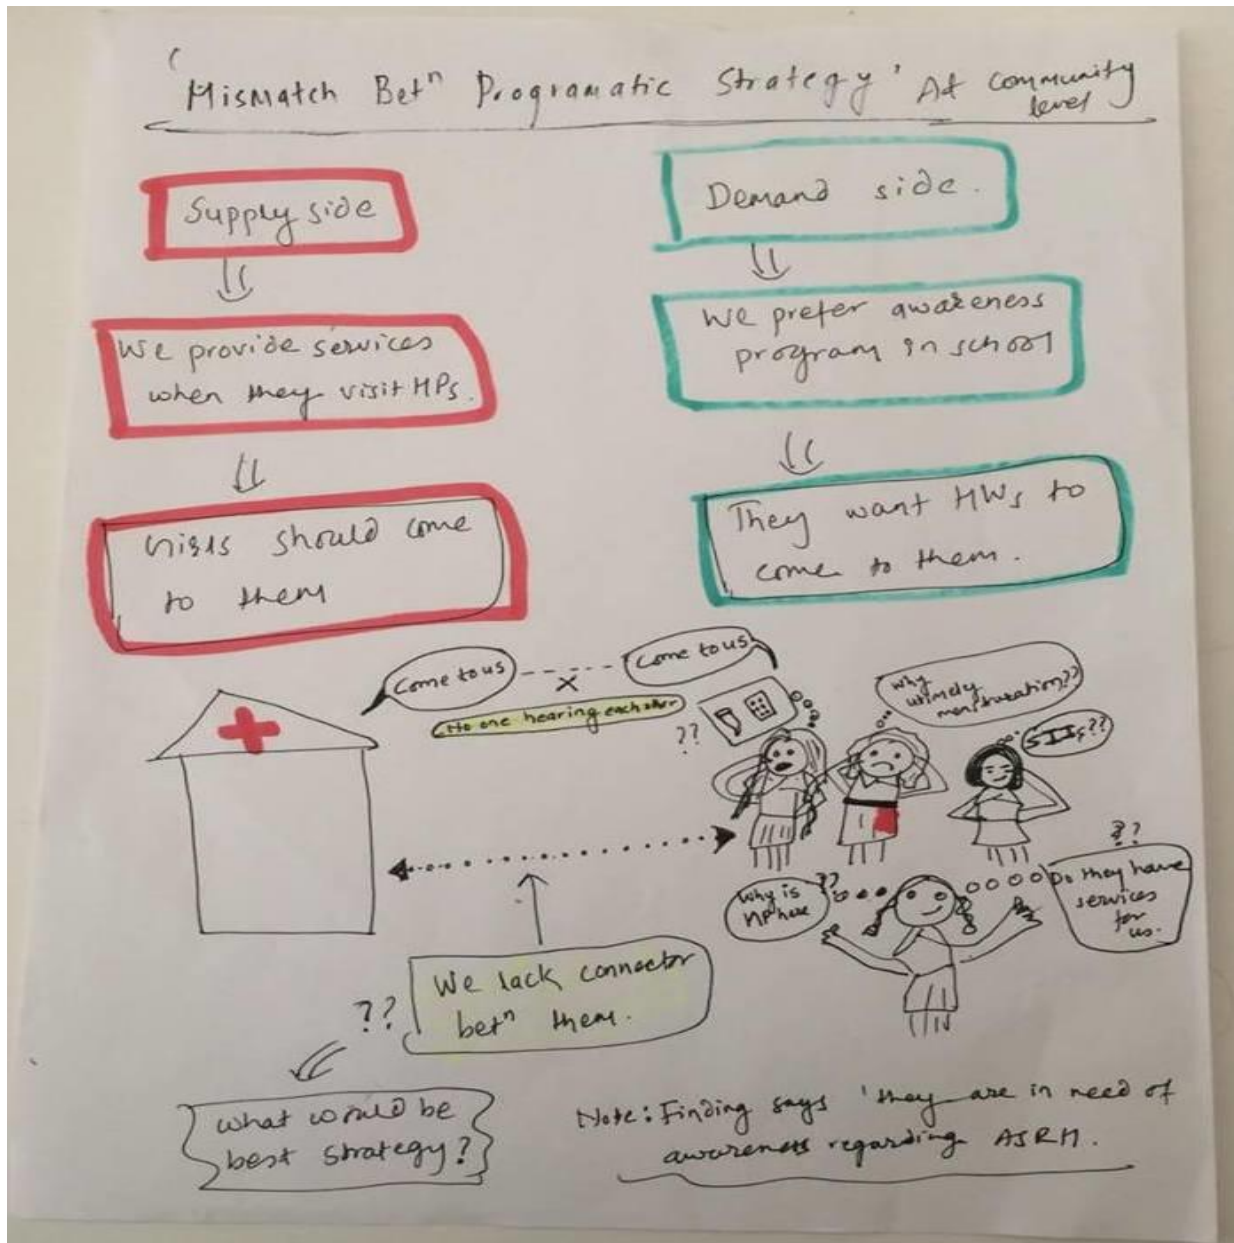 'Mismatch Betⁿ Programatic Strategy' At community
level
Supply side
We provide services
when they visit HPs.
Girls should come
to them
Demand side.
We prefer awareness
program in school
They want HWs to
come to them.
Come to us
Come to us
X
No one hearing each other
??
Why
utimely
menstruation??
STIs??
Why is
HP here
??
??
Do they have
services
for
us.
We lack connector
betⁿ them.
??
What would be
best strategy?
Note: Finding says 'they are in need of
awareness regarding ASRH.